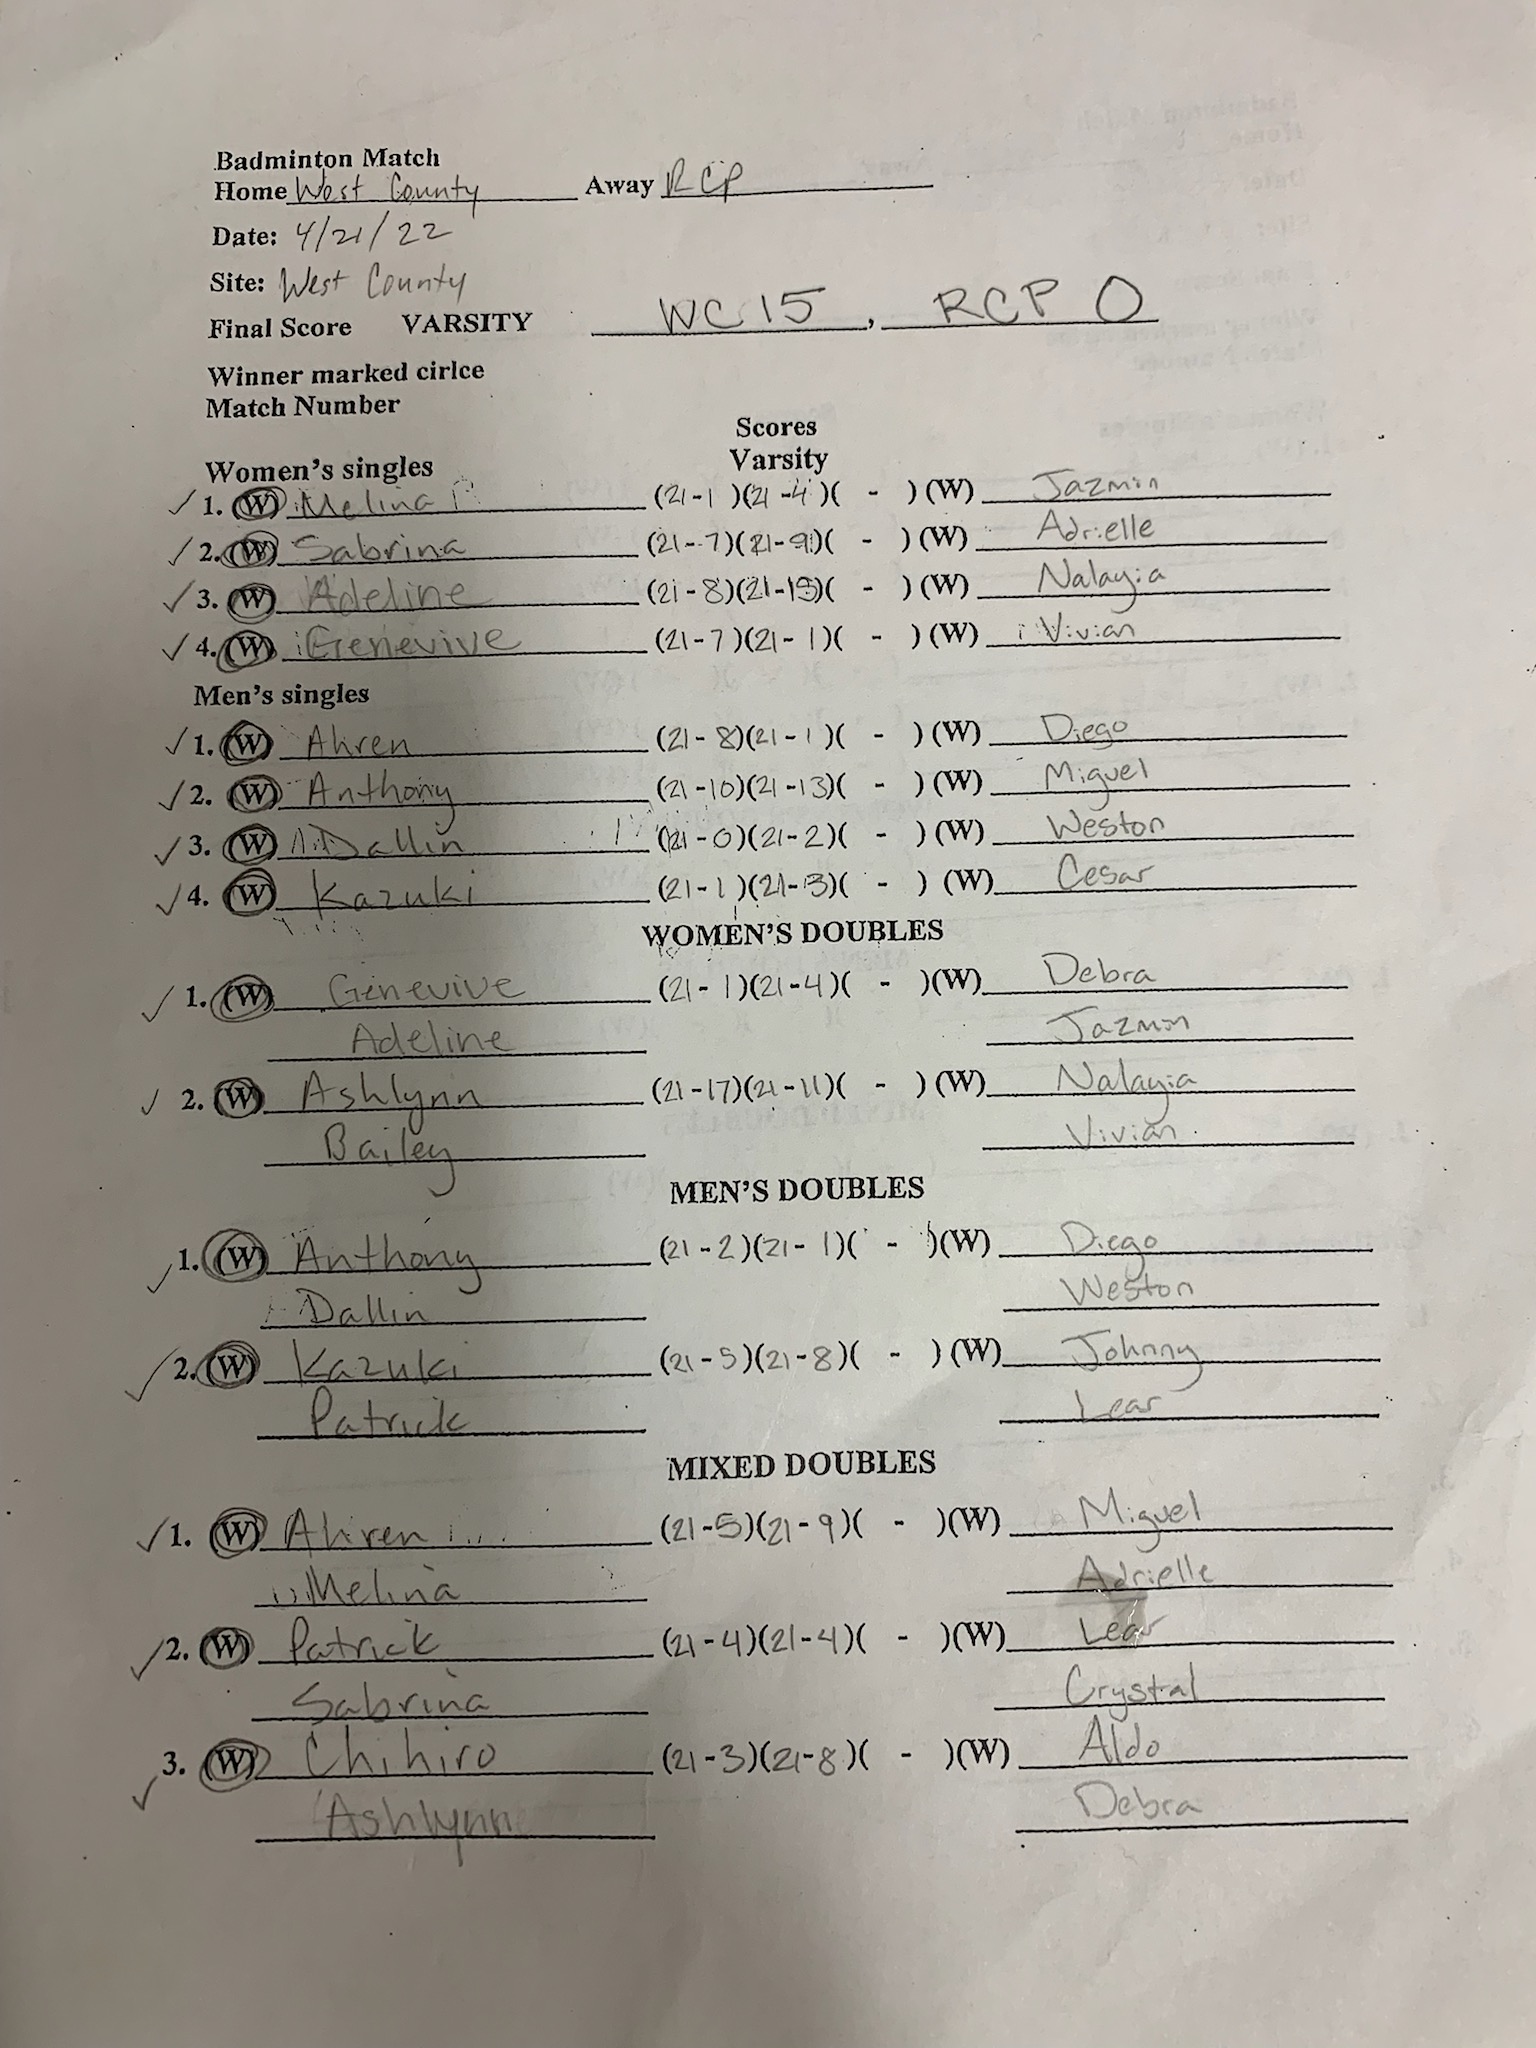 Badminton Match
Home West County Away RCP
Date: 4/21/22
Site: West County
Final Score VARSITY WC 15, RCP 0
Winner marked cirlce
Match Number
Scores
Women's singles Varsity
1. (W) Melina (21-1)(21-4)( - )(W) Jazmin
2. (W) Sabrina (21-7)(21-9)( - )(W) Adrielle
3. (W) Adeline (21-8)(21-15)( - )(W) Nalayia
4. (W) Genevive (21-7)(21-1)( - )(W) Vivian
Men's singles
1. (W) Ahren (21-8)(21-1)( - )(W) Diego
2. (W) Anthony (21-10)(21-13)( - )(W) Miguel
3. (W) Dallin (21-0)(21-2)( - )(W) Weston
4. (W) Kazuki (21-1)(21-3)( - )(W) Cesar
WOMEN'S DOUBLES
1. (W) Genevive (21-1)(21-4)( - )(W) Debra
Adeline Jazmin
2. (W) Ashlynn (21-17)(21-11)( - )(W) Nalayia
Bailey Vivian
MEN'S DOUBLES
1. (W) Anthony (21-2)(21-1)( - )(W) Diego
Dallin Weston
2. (W) Kazuki (21-5)(21-8)( - )(W) Johnny
Patrick Lear
MIXED DOUBLES
1. (W) Ahren (21-5)(21-9)( - )(W) Miguel
Melina Adrielle
2. (W) Patrick (21-4)(21-4)( - )(W) Lear
Sabrina Crystal
3. (W) Chihiro (21-3)(21-8)( - )(W) Aldo
Ashlynn Debra